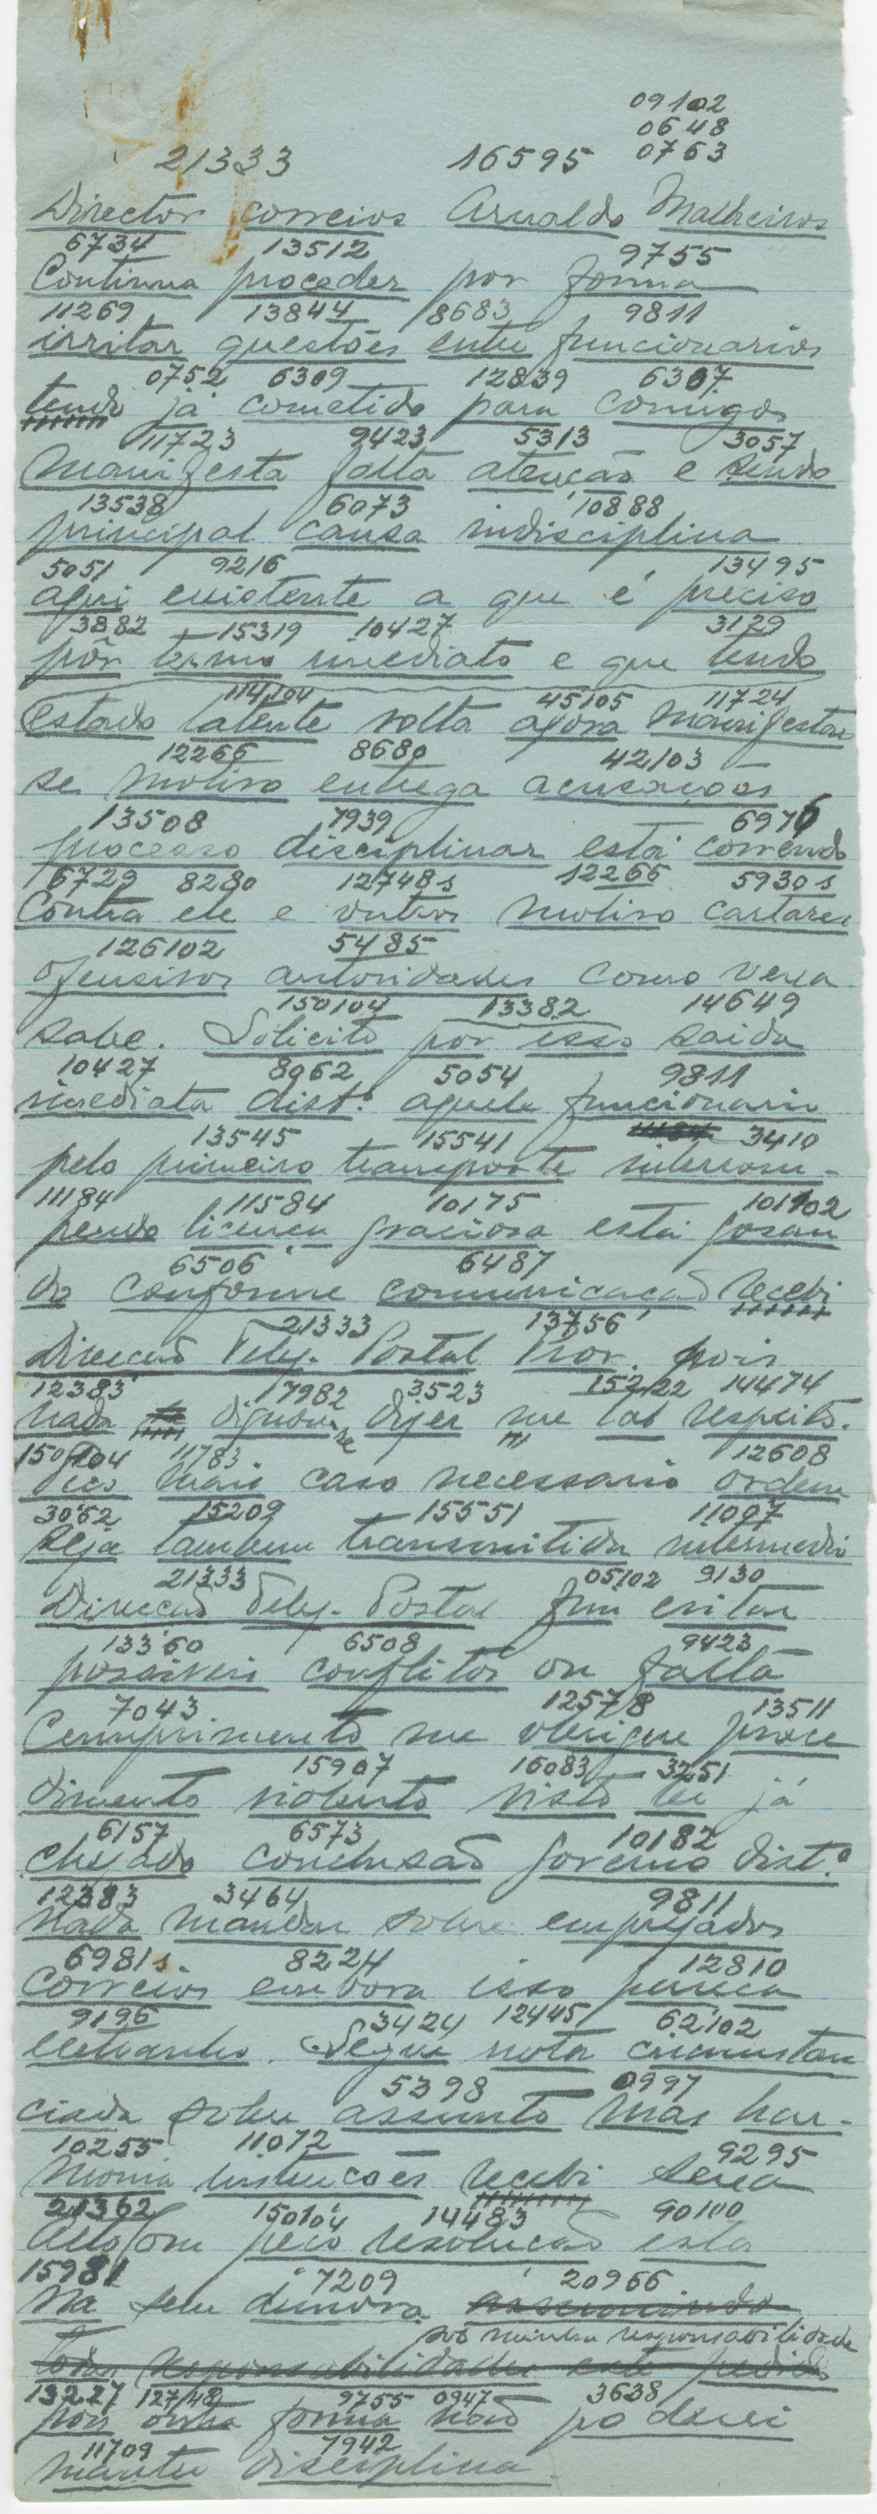 09102
0648
21333 16595 0763
Director correios Arnaldo Malheiros
6734 13512 9755
Continua proceder por forma
11269 13844 8683 9811
irritar questões entre funcionarios
0752 6309 12839 6307
tendo já cometido para comigo
11723 9423 5313 3057
manifesta falta atenção e sendo
13538 6073 10888
principal causa indisciplina
5051 9216 13495
aqui existente a que é preciso
3882 15319 10427 3129
pôr termo imediato e que tendo
114104 45105 11724
estado latente volta agora manifestar
12266 8680 42103
se motivo entrega acusações
13508 7939 6976
processo disciplinar está correndo
6729 8280 12748s 12266 5930s
Contra ele e outros motivo cartares
126102 5485
ofensivos autoridades como vexa
150104 13382 14649
sabe. Solicito por isso saida
10427 8062 5054 9811
imediata dist.º aquele funcionario
13545 15541 11184 3410
pelo primeiro transporte interrom-
11184 11584 10175 101102
pendo licença graciosa está gosan
6506 6487
do conforme comunicação recebi
21333 13756
Direcção Teleg. Postal Prov. pois
12383 17982 3523 15222 14474
nada dignou se dizer me tal respeito.
150104 11783 12608
Peço mais caso necessario ordem
3052 15209 15551 11097
seja tambem transmitida intermedio
21333 05102 9130
Direcção Teleg. Postal fim evitar
13360 6508 9423
possiveis conflitos ou falta
7043 12578 13511
Cumprimento me obrigue proce
15907 16083 3251
dimento violento visto ter já
6157 6573 10182
chegado conclusão governo dist.º
12383 3464 9811
nada mandar sobre empregados
6981s. 8224 12810
Correios embora isso pareça
9196 3424 12445 62102
extranho. Segue nota circunstan
5398 0997
ciada sobre assunto mas har-
10255 11072 9295
monia instruções recebi
21362 150104 14483 90100
peço resolução esta
15981 7209 20966
na sem demora assumindo
sob minha responsabilidade
toda responsabilidade este pedido
13227 127/48 9755 0947 3638
pois outra forma não poderei
11709 7942
manter disciplina.